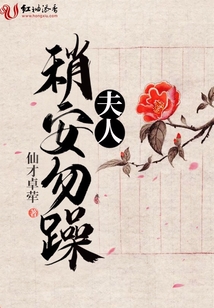 红袖添香
www.hongxiu.com
夫人
稍安勿躁
仙才卓荦 著